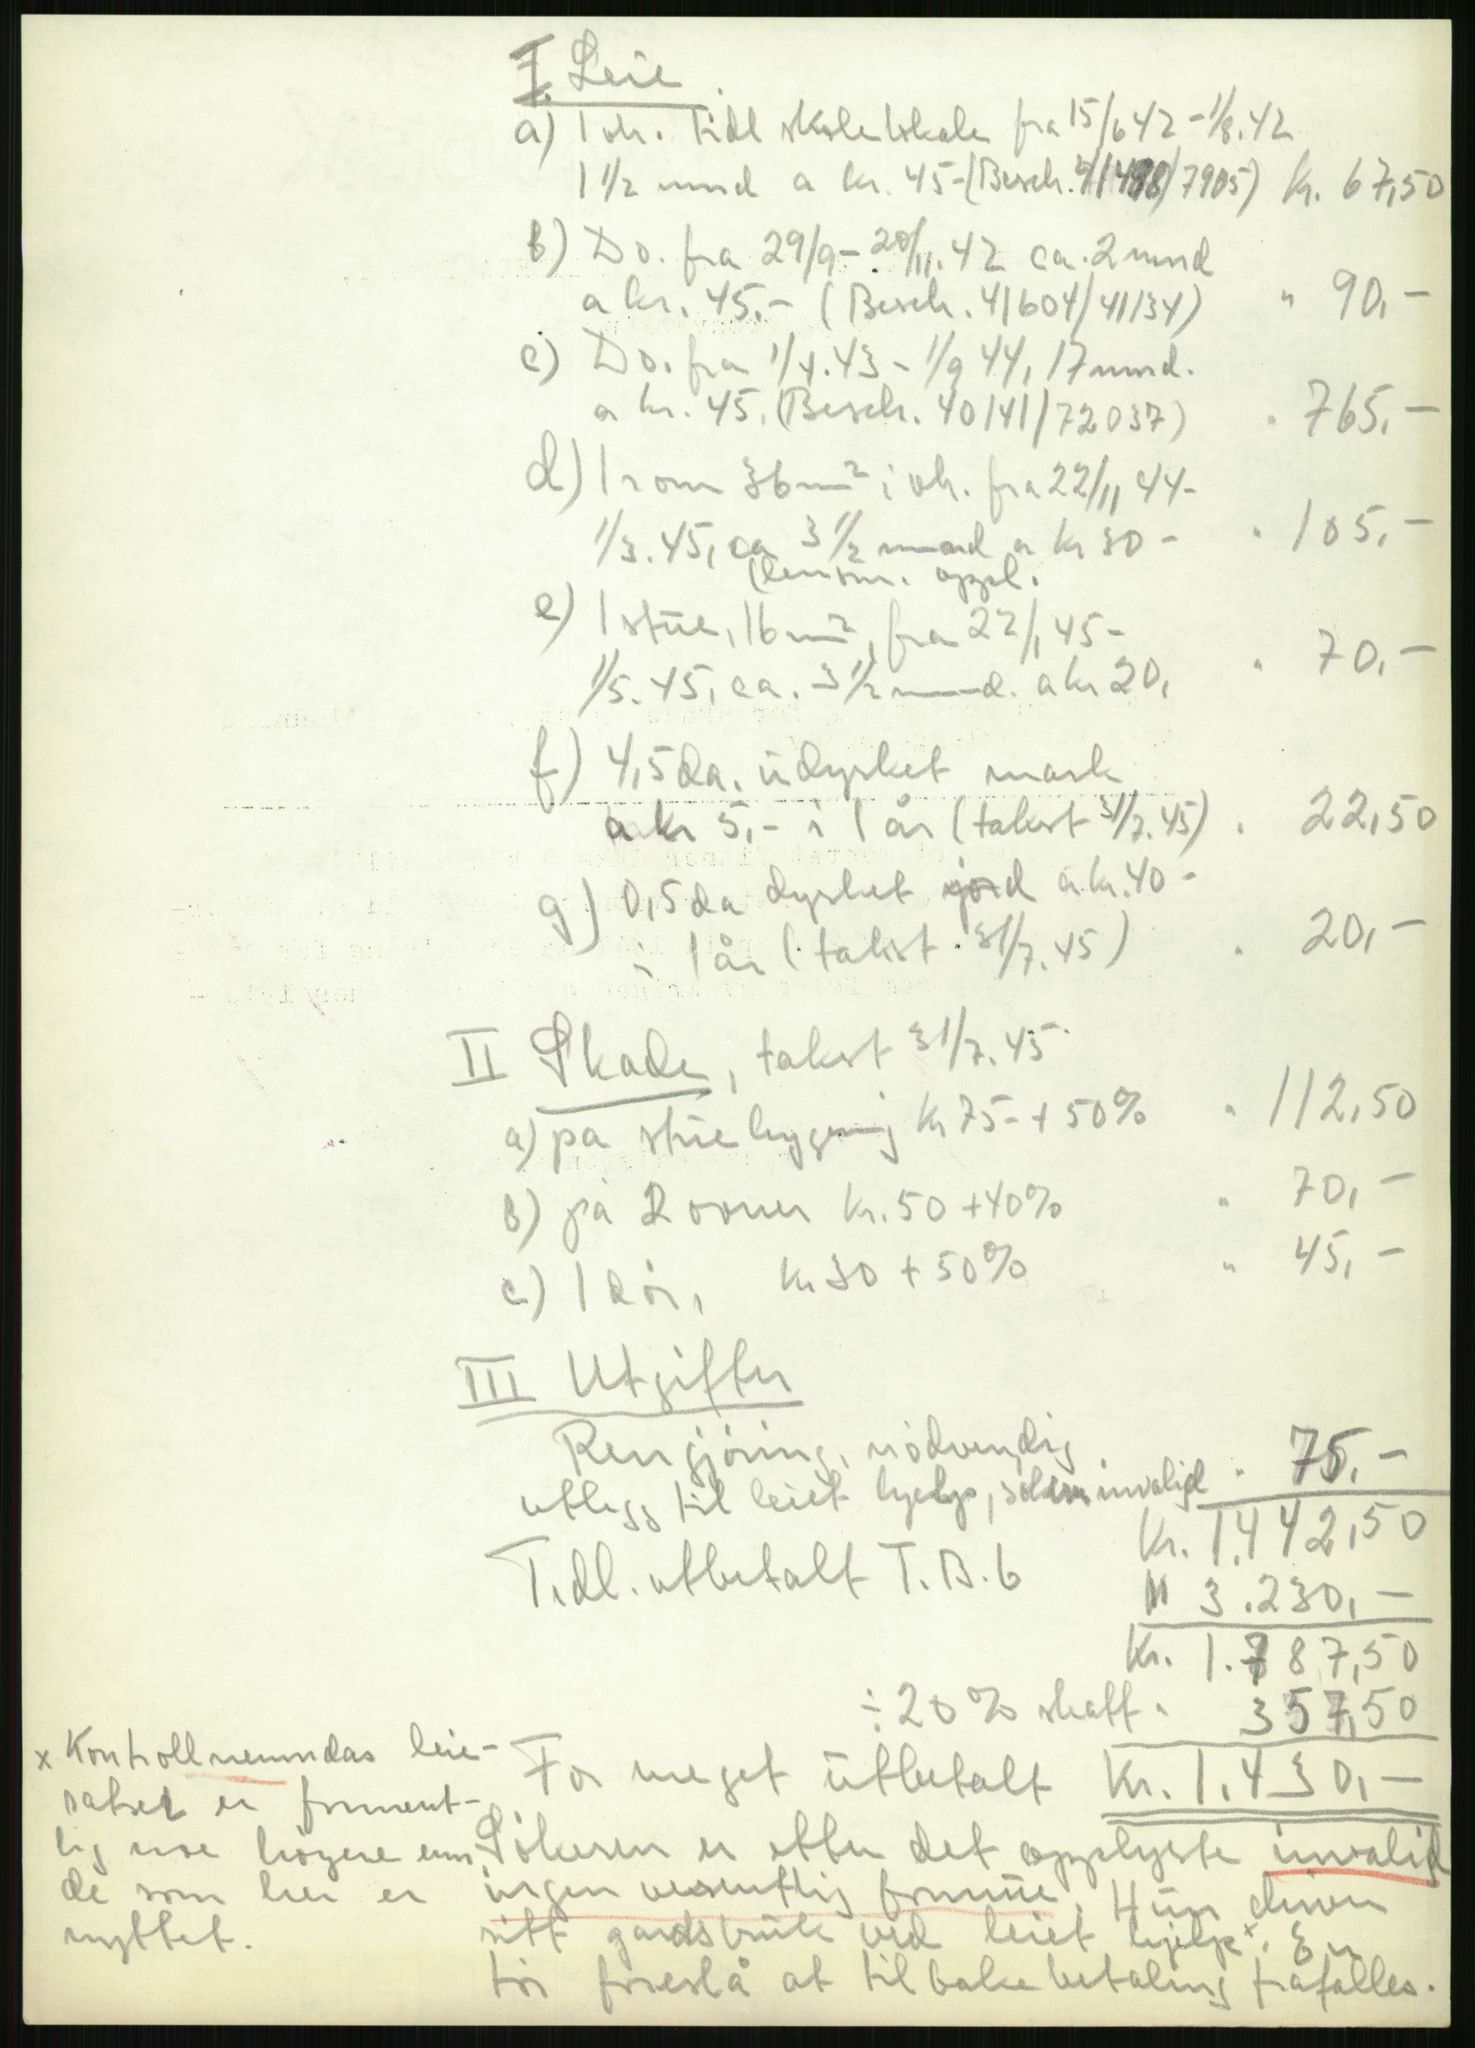 I. Leie.
a) 1 vh. Tidl skolelokale fra 15/6 42 - 1/8.42
1 1/2 mnd a kr. 45- (Besch. /7905) Kr. 67,50
b) Do. fra 29/9 - 20/11.42 ca. 2 mnd
a kr. 45.- (Besch. 41604/41134) " 90,-
c) Do. fra 1/4.43 - 1/9 44, 17 mnd.
a kr. 45. (Besch. 40141/72037) " 765,-
d) 1 rom 36 m² i vh. fra 22/11 44-
1/3.45, ca 3 1/2 mnd a kr 30 - " 105,-
(lensm. oppl.
e) 1 stue, 16 m², fra 22/1 45-
1/5.45, ca. 3 1/2 mnd. a kr 20, " 70,-
f) 4,5 da. udyrket mark
a kr 5,- i 1 år (takst 31/7.45) " 22,50
g) 0,5 da dyrket jord a kr. 40 -
i 1 år (takst 31/7.45) " 20,-
II Skade, takst 31/7.45
a) på stuebygning kr 75- + 50% " 112,50
b) på 2 ovner kr. 50 + 40% " 70,-
c) 1 dör, kr 30 + 50% " 45,-
III Utgifter
Rengjöring, nödvendig
utlegg til leiet hjelp, invalid " 75,-
Kr. 1.442,50
Tidl. utbetalt T.B.6 " 3.230,-
Kr. 1.787,50
÷ 20% skatt " 357,50
For meget utbetalt Kr. 1.430,-
Sökeren er etter det opplyste invalid
ingen vesentlig formue. Hun driver
sitt gardsbruk ved leiet hjelp x. En
tör foreslå at tilbakebetaling frafalles.
x Kontrollnemndas leie-
satser er forment-
lig noe högere enn
de som her er
nyttet.